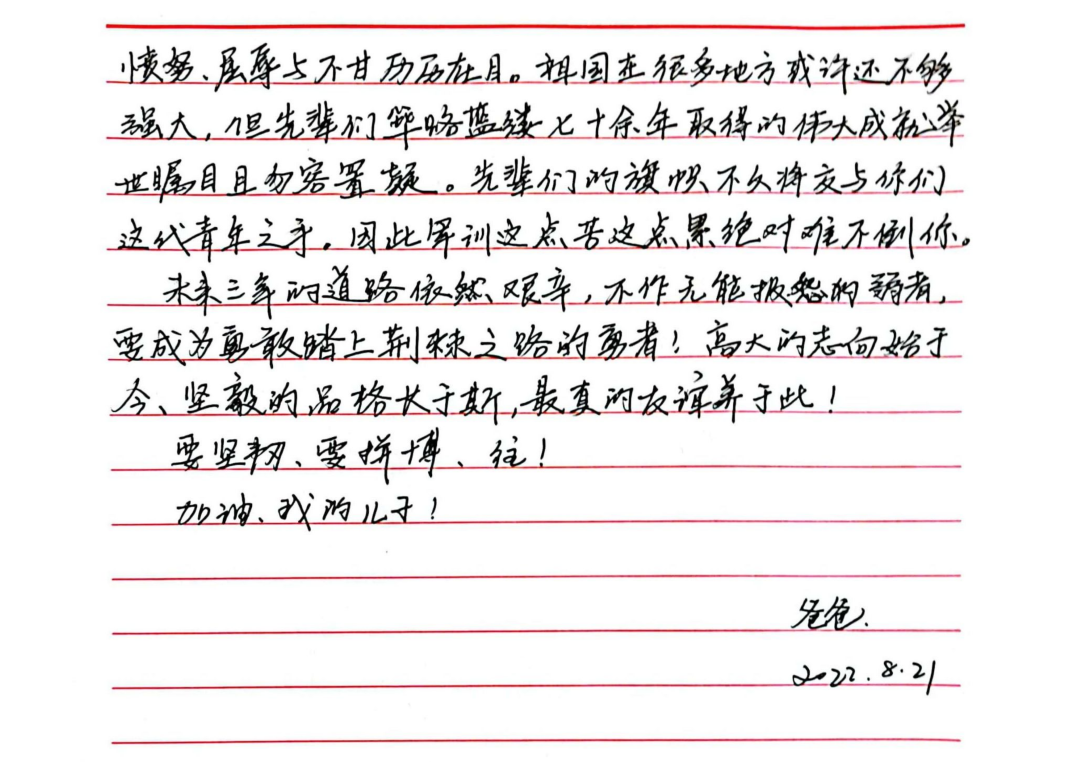 愤怒、屈辱与不甘历历在目。祖国在很多地方或许还不够
强大，但先辈们筚路蓝缕七十余年取得的伟大成就举
世瞩目且勿容置疑。先辈们的旗帜不久将交与你们
这代青年之手。因此军训这点苦这点累绝对难不倒你。
未来三年的道路依然艰辛，不作无能报怨的弱者，
要成为勇敢踏上荆棘之路的勇者！高大的志向始于
今、坚毅的品格长于斯，最真的友谊养于此！
要坚韧、要拼博、往！
加油、我的儿子！
爸爸.
2022.8.21